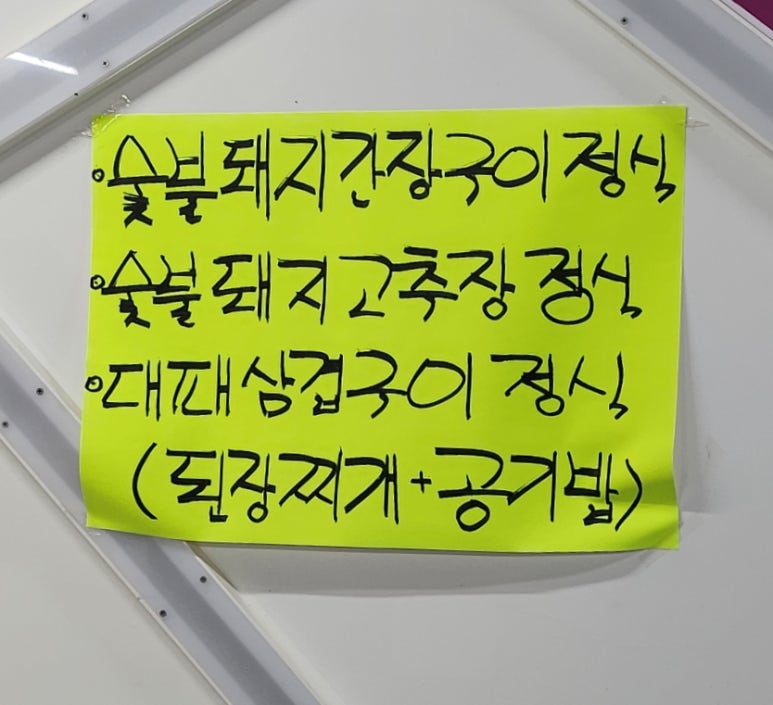 숯불돼지간장구이 정식
숯불돼지고추장 정식
대패삼겹구이 정식
(된장찌개+공기밥)